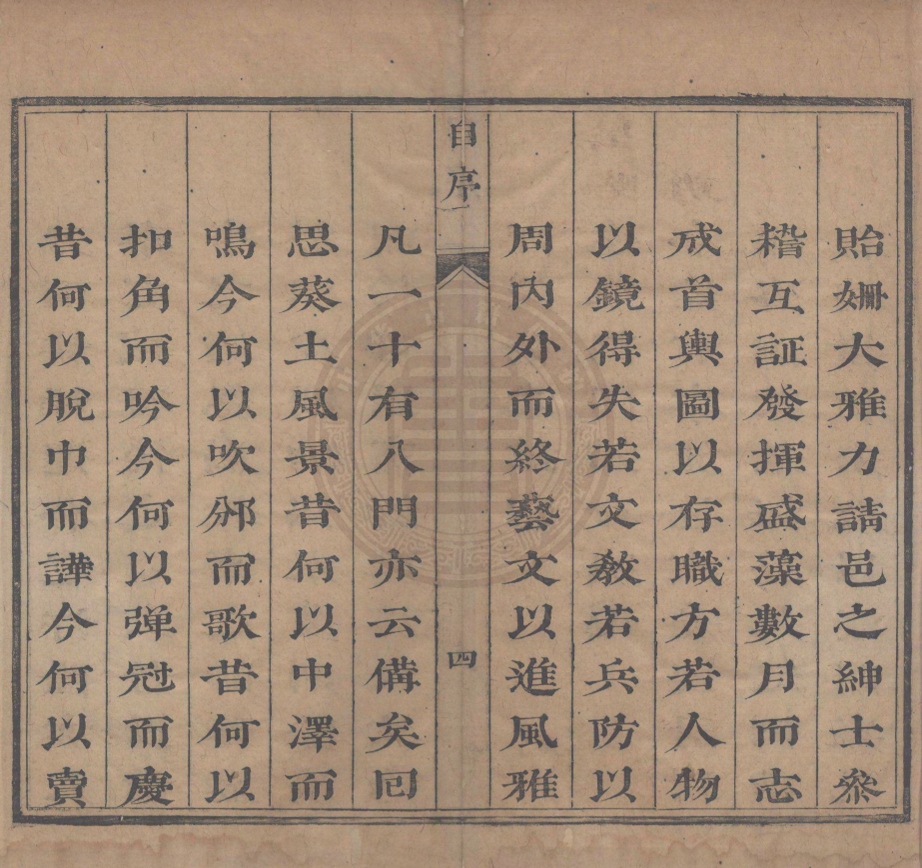 貽姍大雅力請邑之紳士參
稽互証發揮盛藻數月而志
成首輿圖以存職方若人物
以鏡得失若文教若兵防以
周內外而終藝文以進風雅
自序
四
凡一十有八門亦云備矣囘
思葵土風景昔何以中澤而
鳴今何以吹邠而歌昔何以
扣角而吟今何以弹冠而慶
昔何以脫巾而譁今何以賣